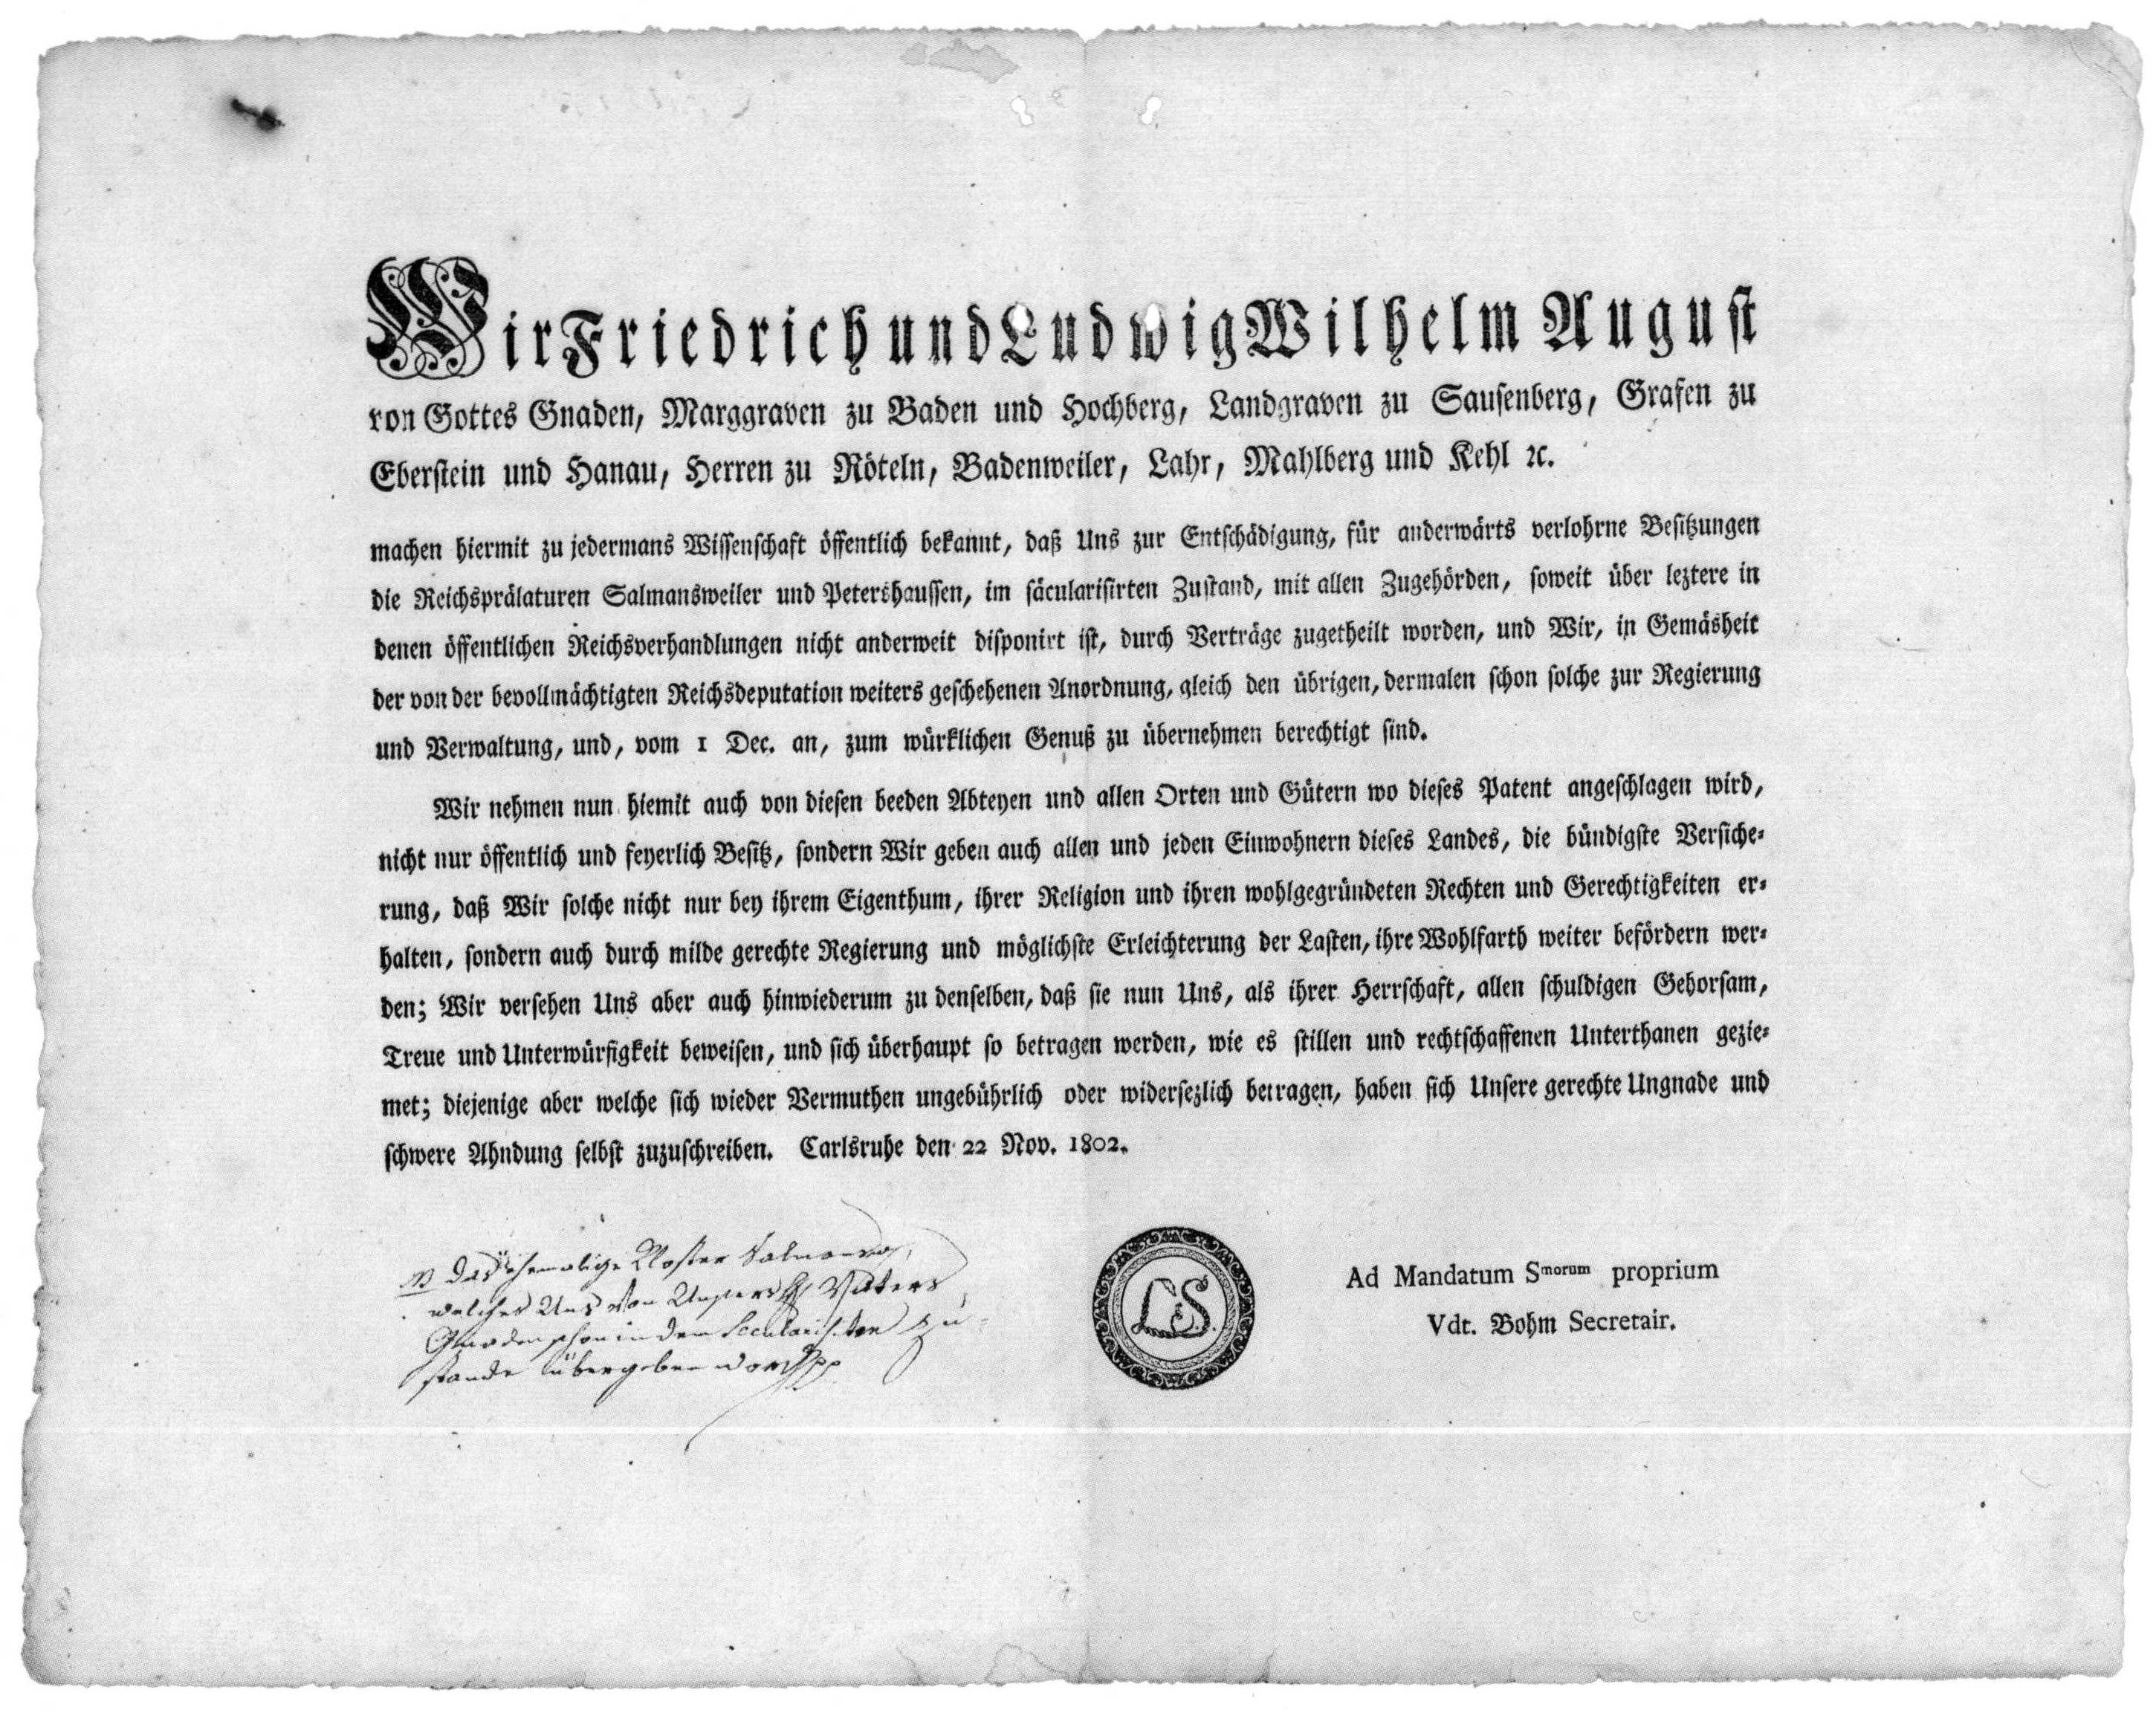 Wir Friedrich und Ludwig Wilhelm August
von Gottes Gnaden, Marggraven zu Baden und Hochberg, Landgraven zu Sausenberg, Grafen zu
Eberstein und Hanau, Herren zu Röteln, Badenweiler, Lahr, Mahlberg und Kehl ꝛc.
machen hiermit zu jedermans Wissenschaft öffentlich bekannt, daß Uns zur Entschädigung, für anderwärts verlohrne Besitzungen
die Reichsprälaturen Salmansweiler und Petershaussen, im säcularisirten Zustand, mit allen Zugehörden, soweit über leztere in
denen öffentlichen Reichsverhandlungen nicht anderweit disponirt ist, durch Verträge zugetheilt worden, und Wir, in Gemäsheit
der von der bevollmächtigten Reichsdeputation weiters geschehenen Anordnung, gleich den übrigen, dermalen schon solche zur Regierung
und Verwaltung, und, vom 1 Dec. an, zum würklichen Genuß zu übernehmen berechtigt sind.
Wir nehmen nun hiemit auch von diesen beeden Abteyen und allen Orten und Gütern wo dieses Patent angeschlagen wird,
nicht nur öffentlich und feyerlich Besitz, sondern Wir geben auch allen und jeden Einwohnern dieses Landes, die bündigste Versiche-
rung, daß Wir solche nicht nur bey ihrem Eigenthum, ihrer Religion und ihren wohlgegründeten Rechten und Gerechtigkeiten er-
halten, sondern auch durch milde gerechte Regierung und möglichste Erleichterung der Lasten, ihre Wohlfarth weiter befördern wer-
den; Wir versehen Uns aber auch hinwiederum zu denselben, daß sie nun Uns, als ihrer Herrschaft, allen schuldigen Gehorsam,
Treue und Unterwürfigkeit beweisen, und sich überhaupt so betragen werden, wie es stillen und rechtschaffenen Unterthanen gezie-
met; diejenige aber welche sich wieder Vermuthen ungebührlich oder widersezlich betragen, haben sich Unsere gerechte Ungnade und
schwere Ahndung selbst zuzuschreiben. Carlsruhe den 22 Nov. 1802.
das ehemalige Kloster
welches Uns von Unsers Vaters
Gnaden schon in dem Secularisirten Zu-
stande übergeben
L. S.
Ad Mandatum Smorum proprium
Vdt. Bohm Secretair.